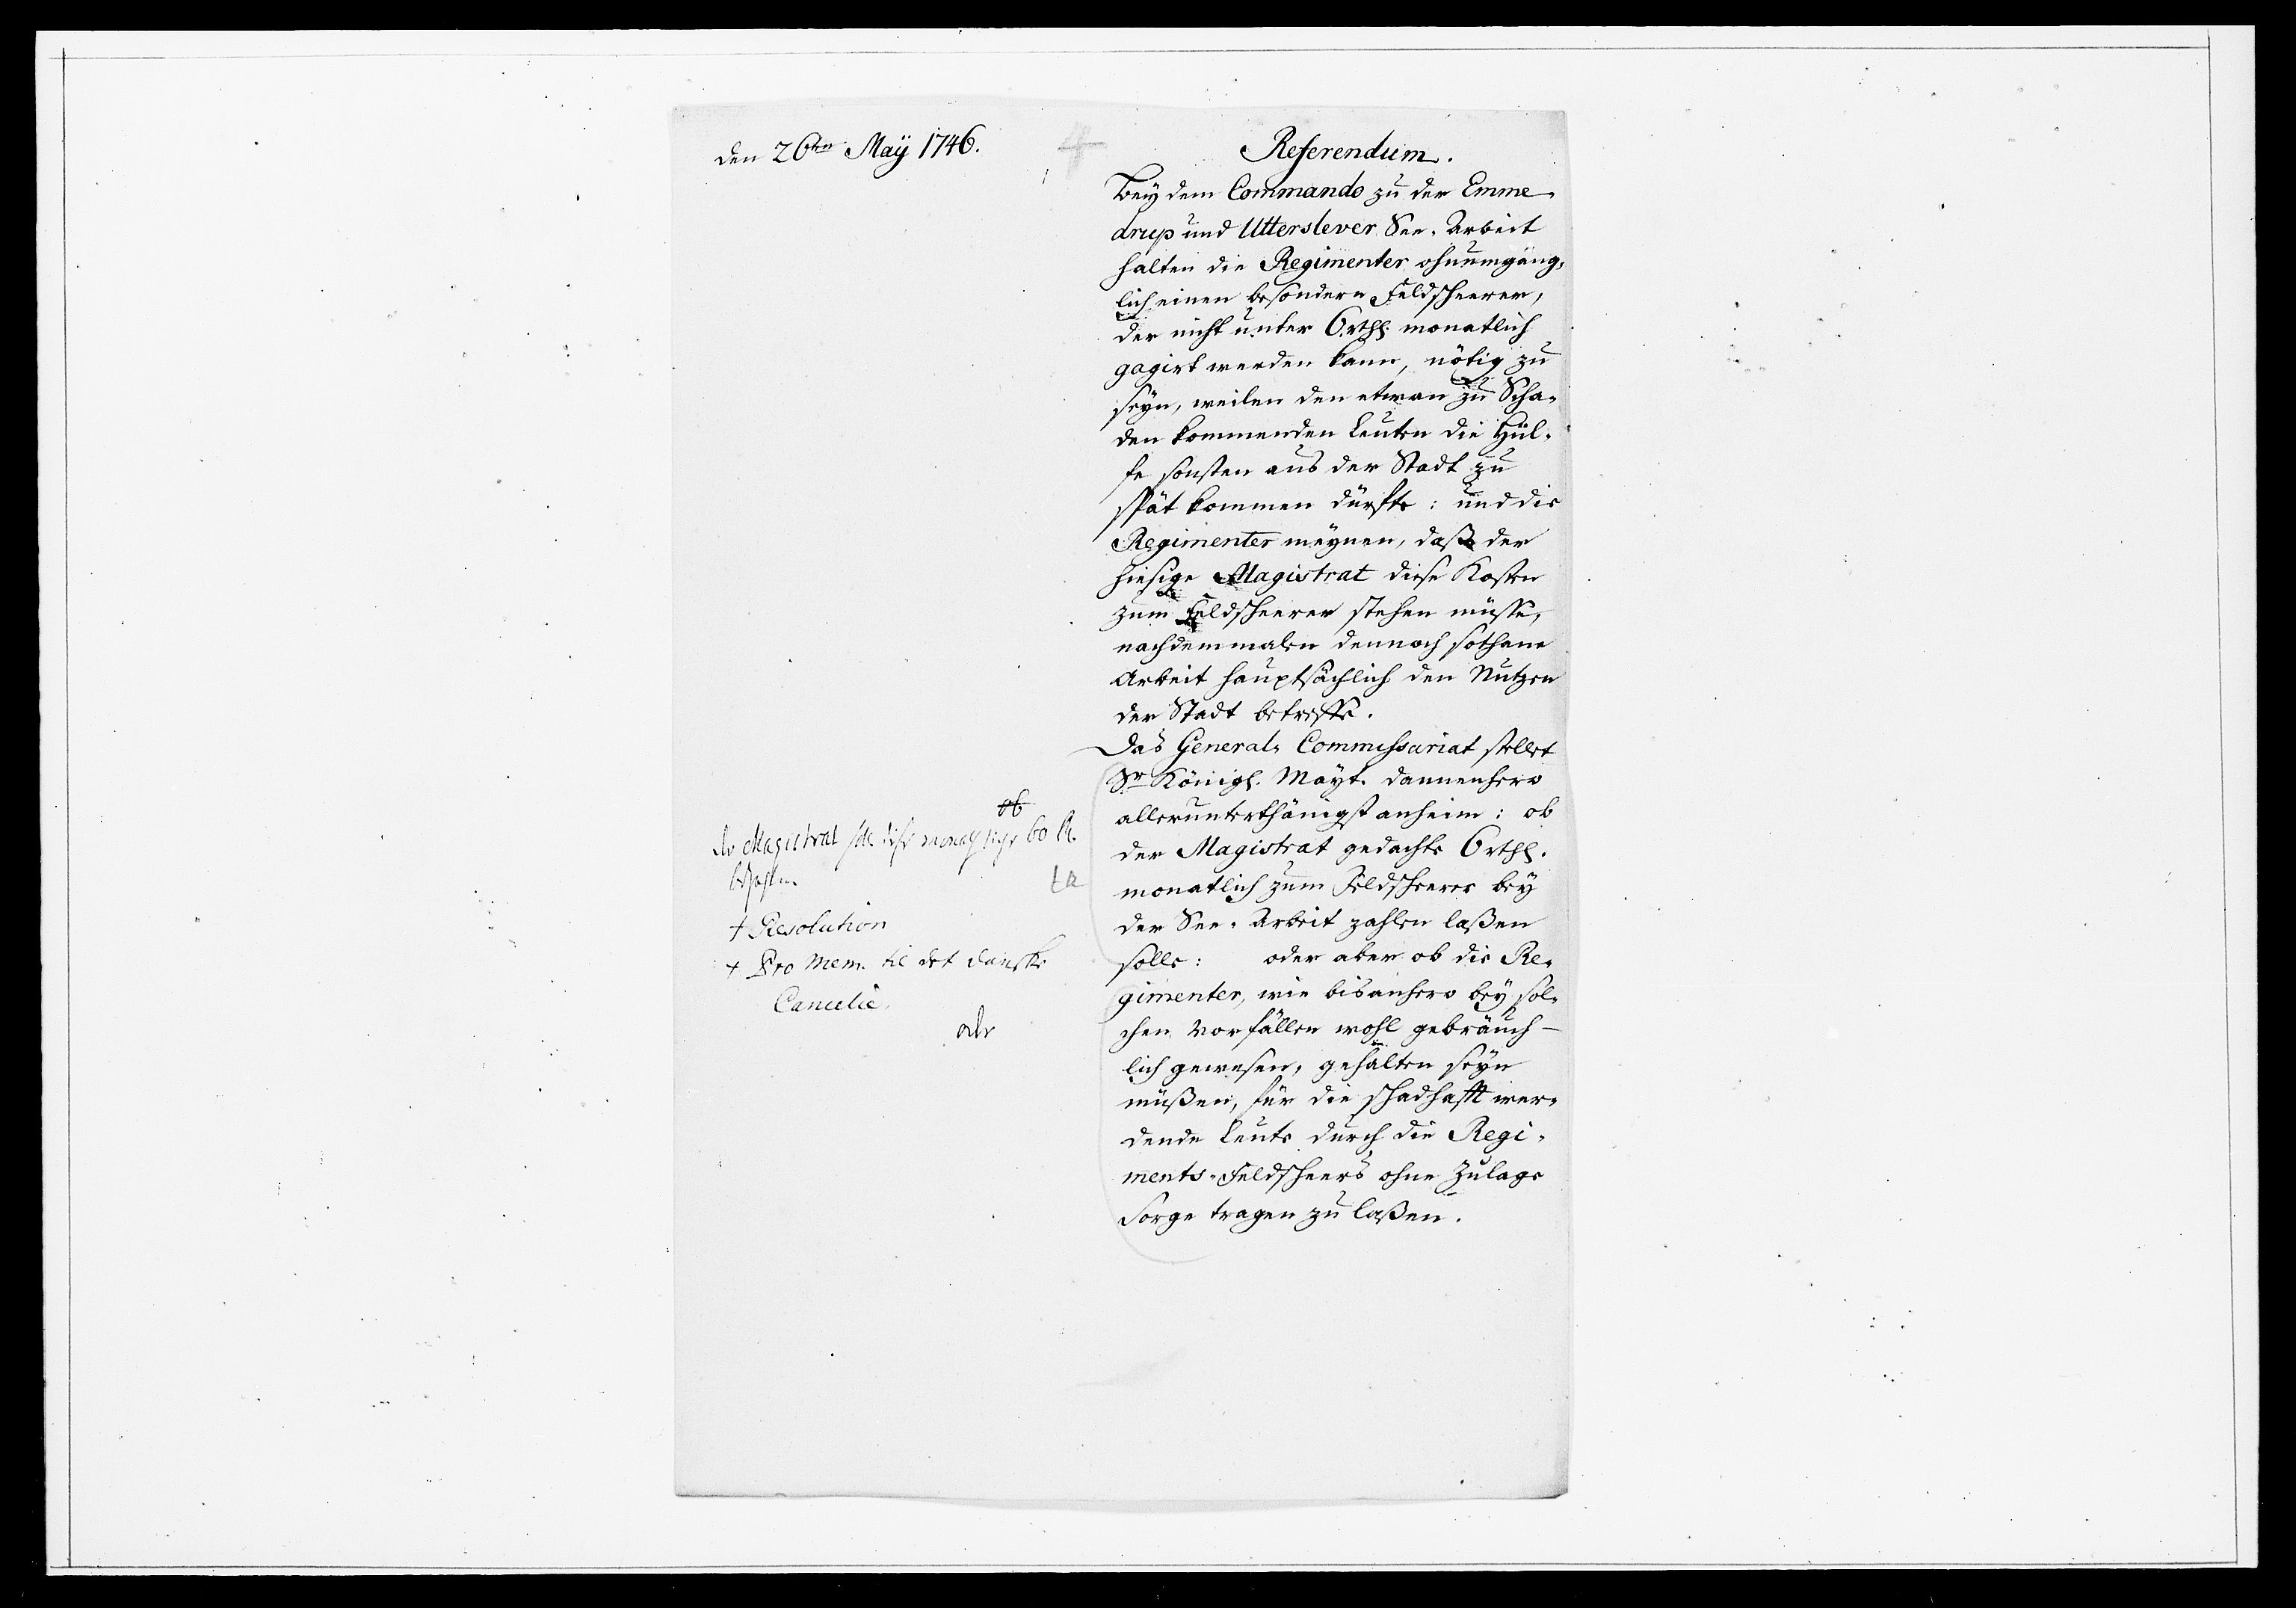 den 26ten Maÿ 1746.
Referendum.
Beÿ dem Commando zu der Emme-
drup und Utterslever See-Arbeit
halten die Regimenter ohnumgäng-
lich einen besondern Feldscheerer,
der nicht unter 6 rthl. monatlich
gagirt werden kann, nötig zu
seÿn, weilen den etwan zu Scha-
den kommenden Leuten die Hül-
fe sonsten aus der Stadt zu
spät kommen dürfte: und die
Regimenter meÿnen, daß der
hiesige Magistrat diese Kosten
zum Feldscheerer stehen müsse,
nachdemmalen dennoch sothane
Arbeit hauptsächlich den Nutzen
der Stadt betreffe.
Das General-Commissariat stellet
Sr Königl. Maÿt. dannenhero
allerunterthänigst anheim: ob
der Magistrat gedachte 6 rthl.
monatlich zum Feldscheerer beÿ
der See-Arbeit zahlen laßen
solle: oder aber ob die Re-
gimenter, wie bisanhero beÿ sol-
chen Vorfällen wohl gebräuch-
lich gewesen, gehalten seÿn
müßen, für die schadhafft wer-
dende Leute durch die Regi-
ments-Feldscheers ohne Zulage
Sorge tragen zu laßen.
ob
der Magistrat soll diese
bezahlen
+ Resolution
+ Pro Mem. til det danske
Cancelie.
oder